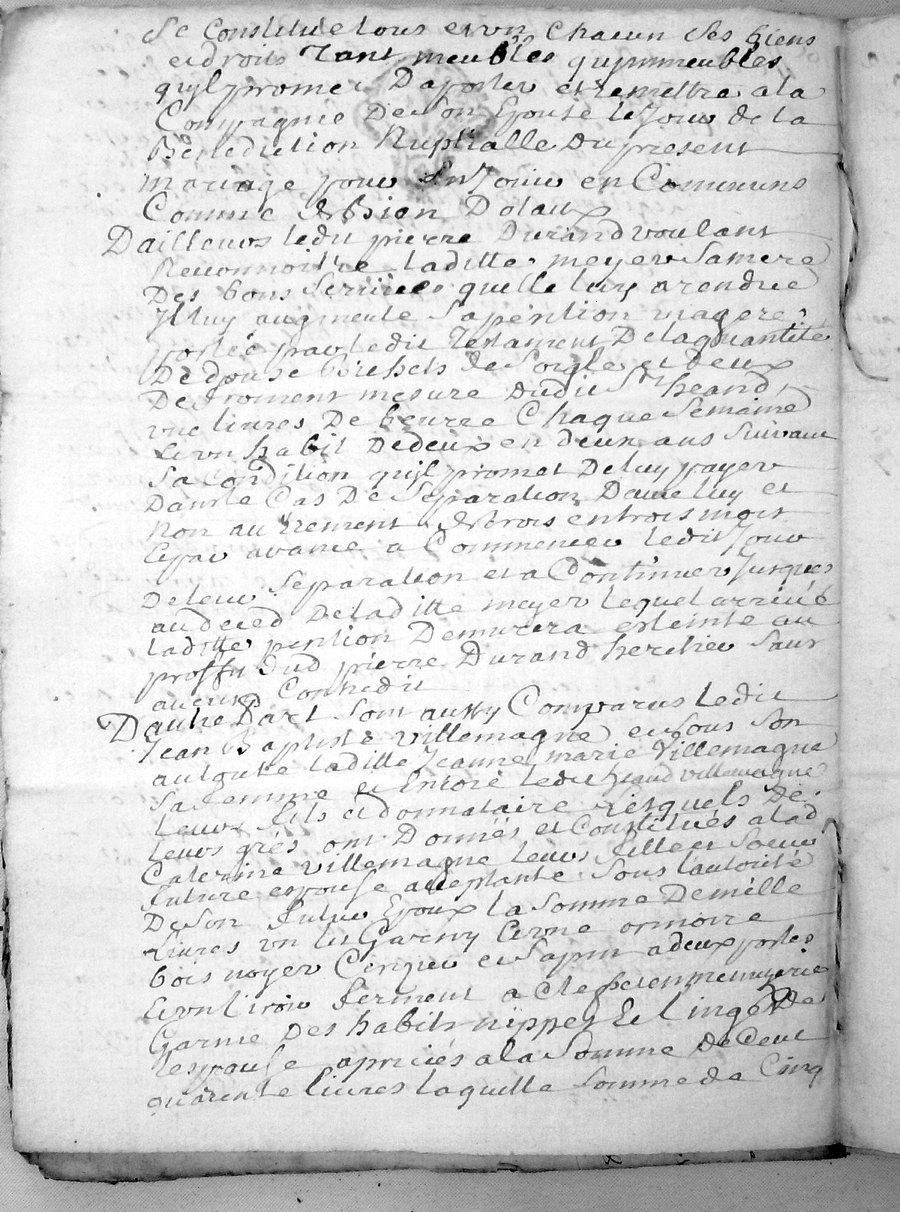 Se Constitue tous et un Chacun Ses biens
et droits Tant meubles qu'immeubles
quil promet D'aporter et remettre a la
Compagnie De Son Epouse le Jour de la
Benediction Nuptialle Du present
mariage pour En Jouir en Communs
Comme de bien Dotaux
Dailleurs ledit pierre Durand voulant
Reconnoitre laditte meyer Sa mere
Des bons Services quelle luy a rendue
Il luy augmente Sa pention viagere
portée par ledit Testament De la quantité
De douse bichets de Soigle et deux
De froment mesure dudit St heand,
une livres De beurre Chaque Semaine
et un habit De deux en deux ans Suivant
Sa Condition quil promet De luy payer
Dans le Cas De Separation Davec luy et
Non autrement de trois en trois mois
et par avance a Commencer ledit Jour
De leur Separation et a Continuer Jusques
au deced De laditte meyer lequel arrivé
laditte pention Demurera esteinte au
proffit dud pierre Durand heritier Sans
aucun Contredit
Dautre Part Sont aussy Comparus ledit
Jean Baptiste villemagne et Sous Son
authorité laditte Jeanne marie Villemagne
Sa femme et Encore ledit heand villemagne
leur fils et donnataire Lesquels De
leurs grés ont Donnés et Constitués a lad
Caterine villemagne leur fille et Soeur
future epouse acceptante Sous l'autorité
De Son futur Epoux la Somme De mille
livres un lit Garny et une ormoire
bois noyer Cirque et Sapin a deux portes
et un tiroir ferment a Clef
Garnie Des habits nippes et linge De
l'epouse apriciés a la Somme De Cent
quarente livres laquelle Somme de Cinq